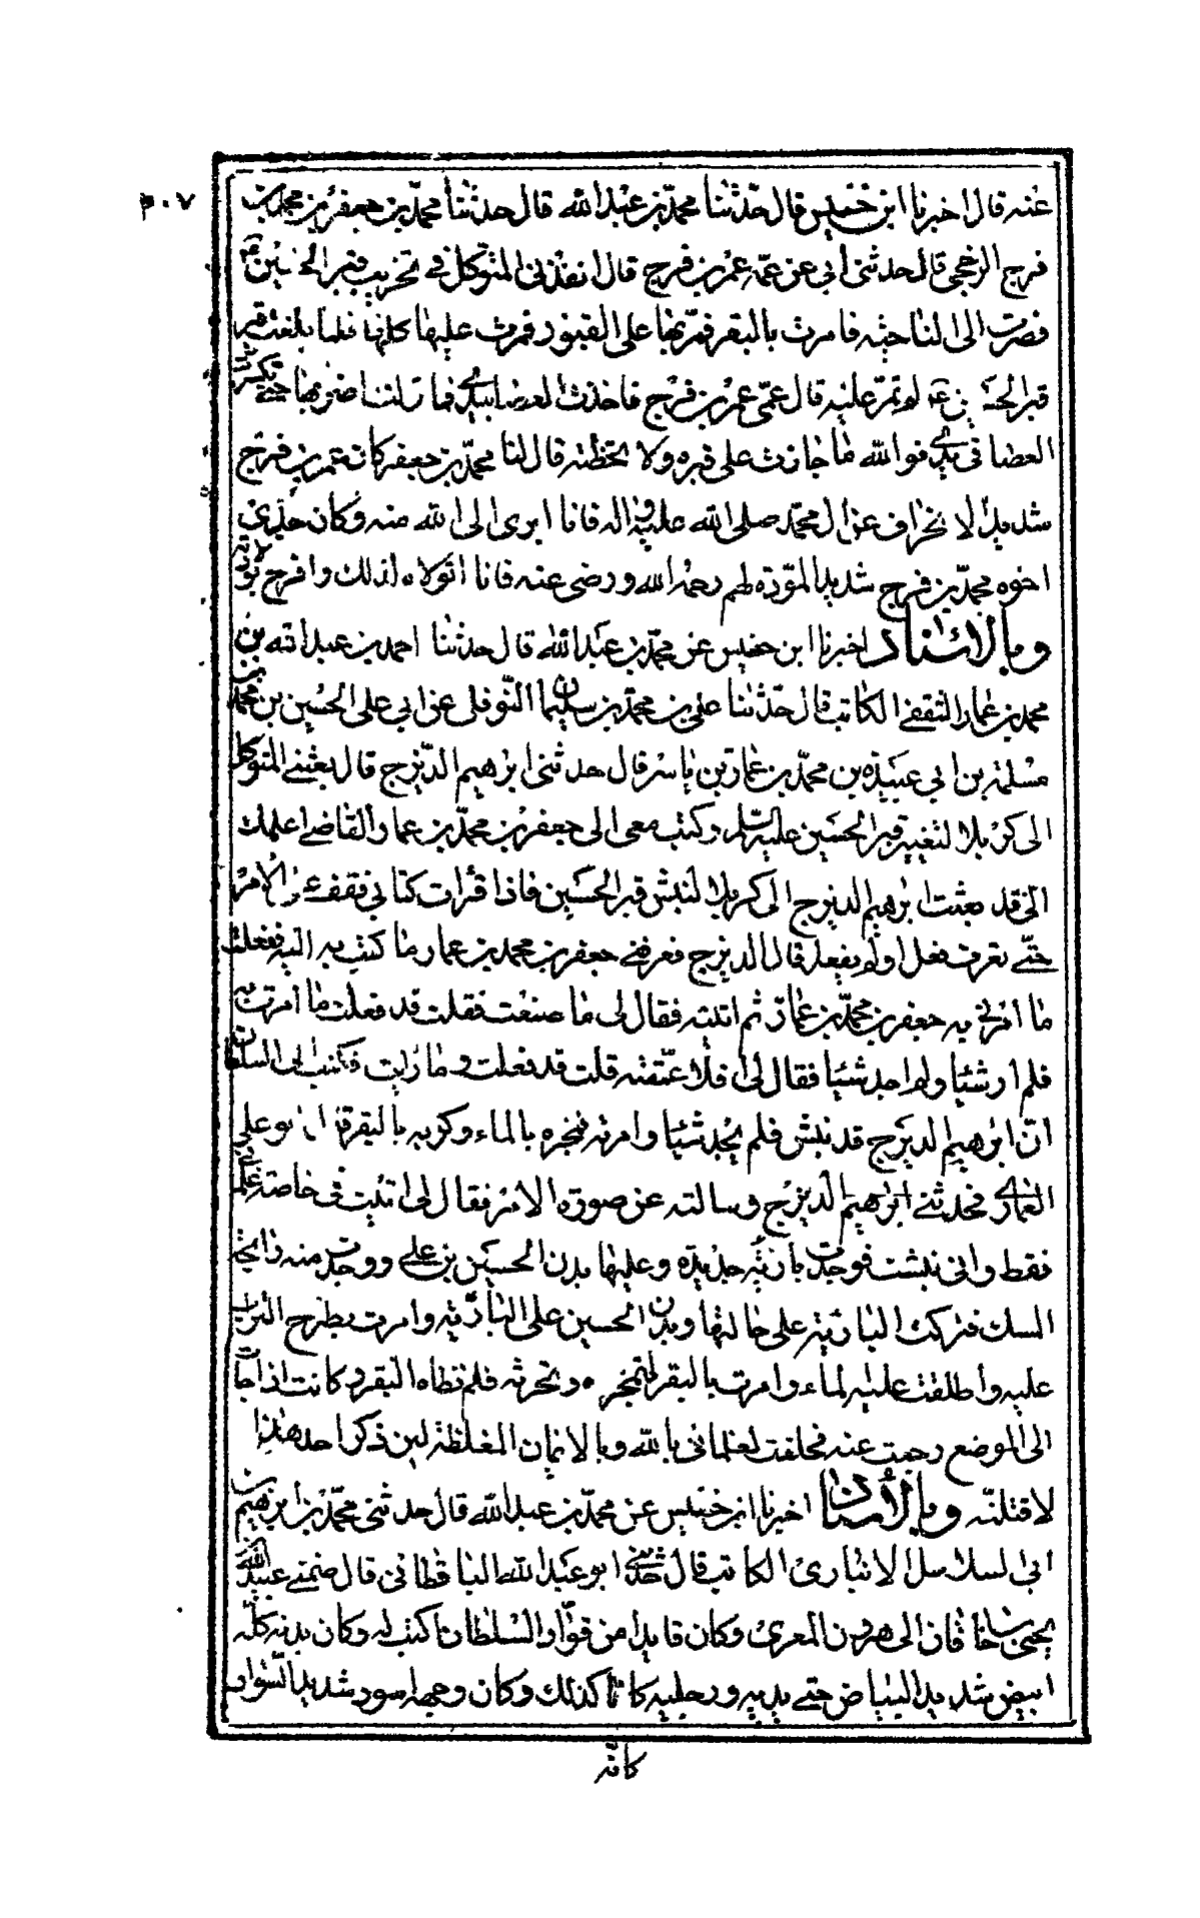 ٣٠٧
عنه قال اخبرنا ابن خنيس قال حدّثنا محمّد بن عبد الله قال حدثنا محمّد بن جعفر بن محمد بن
فرج الرخجي قال حدثني أبي عن عمّه عمر بن فرج قال انفذني المتوكل في تخريب قبر الحسين ع
فصرت الى الناحية فامرت بالبقر فمرّ بها على القبور فمرت عليها كلها فلما بلغت قبر
قبر الحسين ع لم تمرّ عليه قال عمّي عمر بن فرج فاخذت العصا بيدي فما زلت اضربها حتى تكسرت
العصا في يدي فوالله ما جازت على قبره ولا تخطته قال لنا محمّد بن جعفر كان عمر بن فرج
شديد الانحراف عن آل محمّد صلى الله عليه واله فانا ابرئ الى الله منه وكان جدّي
اخوه محمّد بن فرج شديد المودّة لهم رحمه الله ورضى عنه فانا اتولاه لذلك وافرح بولادته
وبالاسناد اخبرنا ابن خنيس عن محمّد بن عبد الله قال حدثنا احمد بن عبد الله بن
محمد بن عمار الثقفي الكاتب قال حدّثنا علي بن محمّد بن سليمان النّوفلي عن ابي علي الحسين بن محمّد بن
مسلمة بن ابي عبيدة بن محمّد بن عمار بن ياسر قال حدثني ابرهيم الدّيزج قال بعثني المتوكل
الى كربلا لتغيير قبر الحسين عليه السّلم وكتب معي الى جعفر بن محمّد بن عمار القاضي اعلمك
انّي قد بعثت ابرهيم الديزج الى كربلا لنبش قبر الحسين فاذا قرأت كتابي فقف على الامر
حتّى تعرف فعل او لم يفعل قال الديزج فعرفني جعفر بن محمد بن عمار ما كتب به اليه ففعلت
ما امرني به جعفر بن محمّد بن عمار ثم اتيته فقال لي ما صنعت فقلت قد فعلت ما امرت به
فلم ار شيئا ولم اجد شيئا فقال لي افلا عمّقته قلت قد فعلت وما رأيت فكتب الى السلطان
انّ ابرهيم الديزج قد نبش فلم يجد شيئا وامرته فمخره بالماء وكربه بالبقر قال ابو علي
العماري فحدثني ابرهيم الديزج وسالته عن صورة الامر فقال لي اتيت في خاصة غلماني
فقط واني نبشت فوجدت بارية جديدة وعليها بدن الحسين بن علي ووجدت منه رائحة
المسك فتركت البارية على حالتها وبدن الحسين على البارية وامرت بطرح التراب
عليه واطلقت عليه الماء وامرت بالبقر لتمخره وتحرثه فلم تطاه البقر وكانت اذا جاءت
الى الموضع رجعت عنه فحلفت لغلماني بالله وبالايمان المغلظة لئن ذكر احد هذا
لاقتلنّه وبالاسناد اخبرنا ابن خنيس عن محمّد بن عبد الله قال حدثني محمّد بن ابرهيم بن
ابي السلاسل الانباري الكاتب قال حدثني ابو عبد الله الباقطاني قال ضمني عبيد الله
يحيى بن خاقان الى هرون المعري وكان قايدا من قوّاد السّلطان اكتب له وكان بدنه كلّه
ابيض شديد البياض حتى يديه ورجليه كانا كذلك وكان وجهه اسود شديد السّواد
كانّه